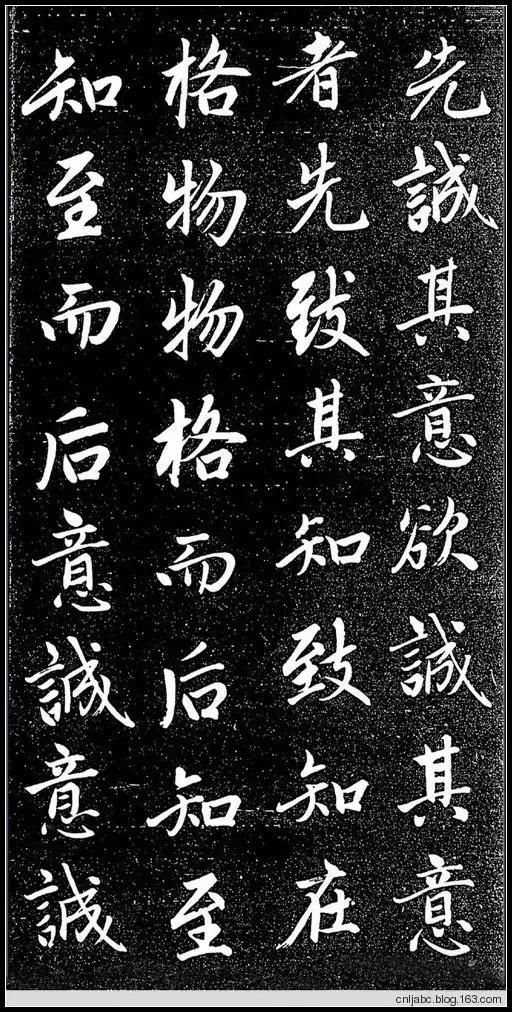 先誠其意欲誠其意
者先致其知致知在
格物物格而后知至
知至而后意誠意誠
cnljabc.blog.163.com